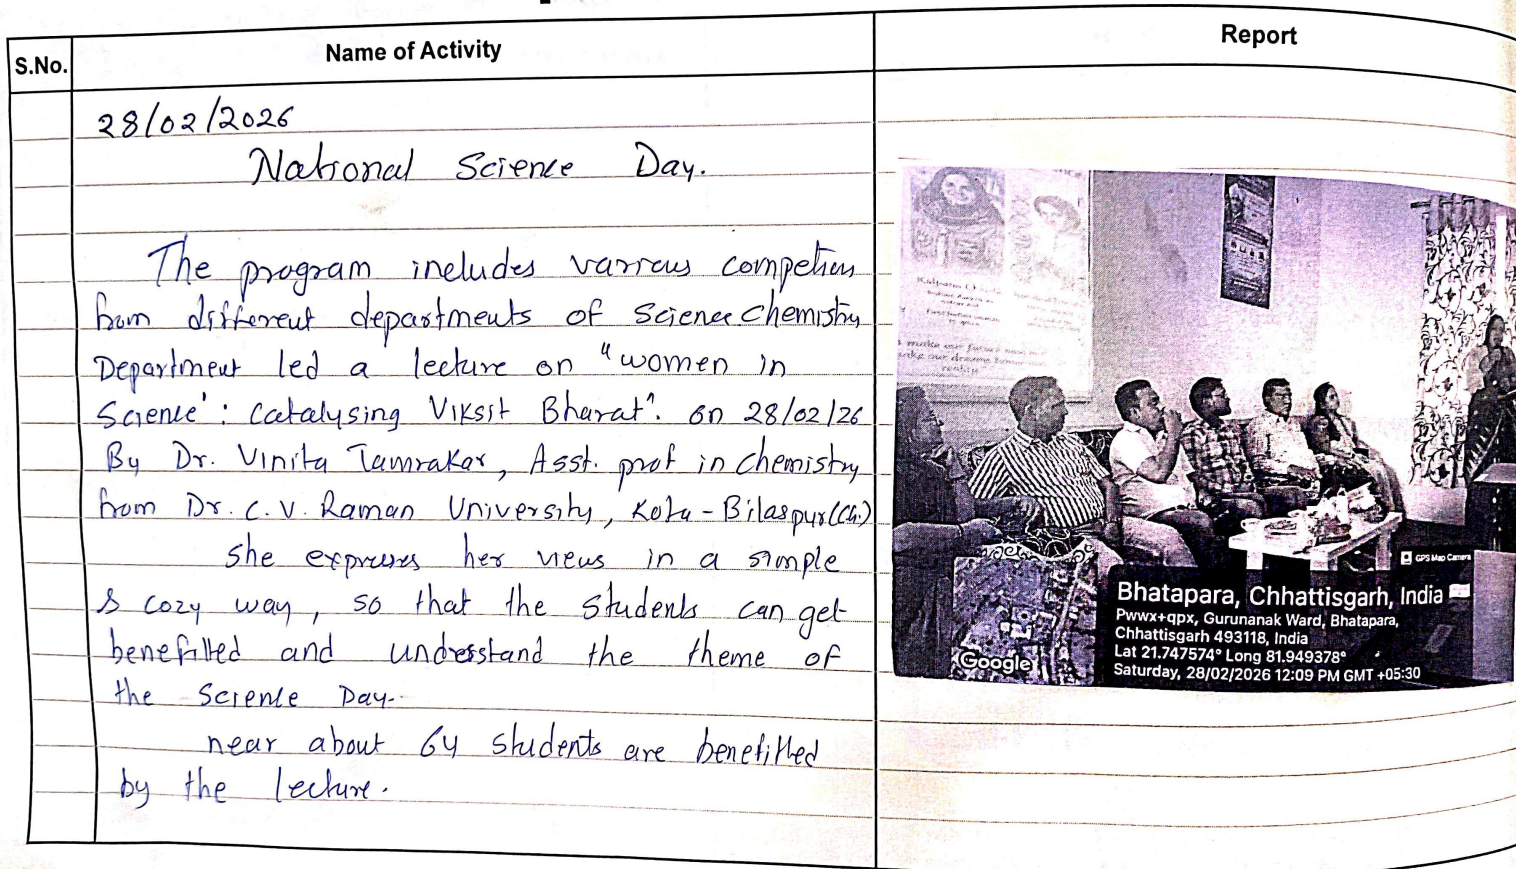 S.No.
Name of Activity
Report
28/02/2026
National Science Day.
The program includes various competion
from different departments of Science Chemistry
Department led a lecture on "women in
Science': Catalysing Viksit Bharat". on 28/02/26
By Dr. Vinita Tamrakar, Asst. prof in chemistry
from Dr. C. V. Raman University, Kota - Bilaspur (Ch.)
She expresses her views in a simple
& cozy way, so that the students can get
benefitted and understand the theme of
the Science Day.
near about 64 students are benefitted
by the lecture.
Kalpana
GPS Map Camera
Bhatapara, Chhattisgarh, India
Pwwx+qpx, Gurunanak Ward, Bhatapara,
Chhattisgarh 493118, India
Lat 21.747574° Long 81.949378°
Saturday, 28/02/2026 12:09 PM GMT +05:30
Google